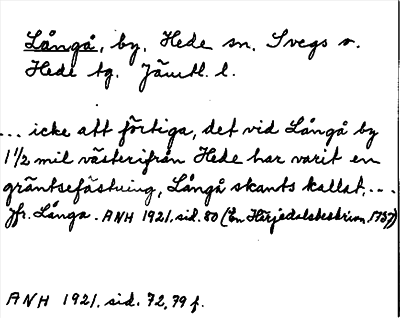 Långå, by, Hede sn. Svegs o.
Hede tg. Jämtl. l.
... icke att förtiga, det vid Långå by
1 1/2 mil västerifrån Hede har varit en
gräntsefästning, Långå skants kallat, ...
Jfr. Långa. ANH 1921, sid. 80 (En Härjedalsbeskrivn. 1757)
ANH 1921. sid. 72, 79 f.